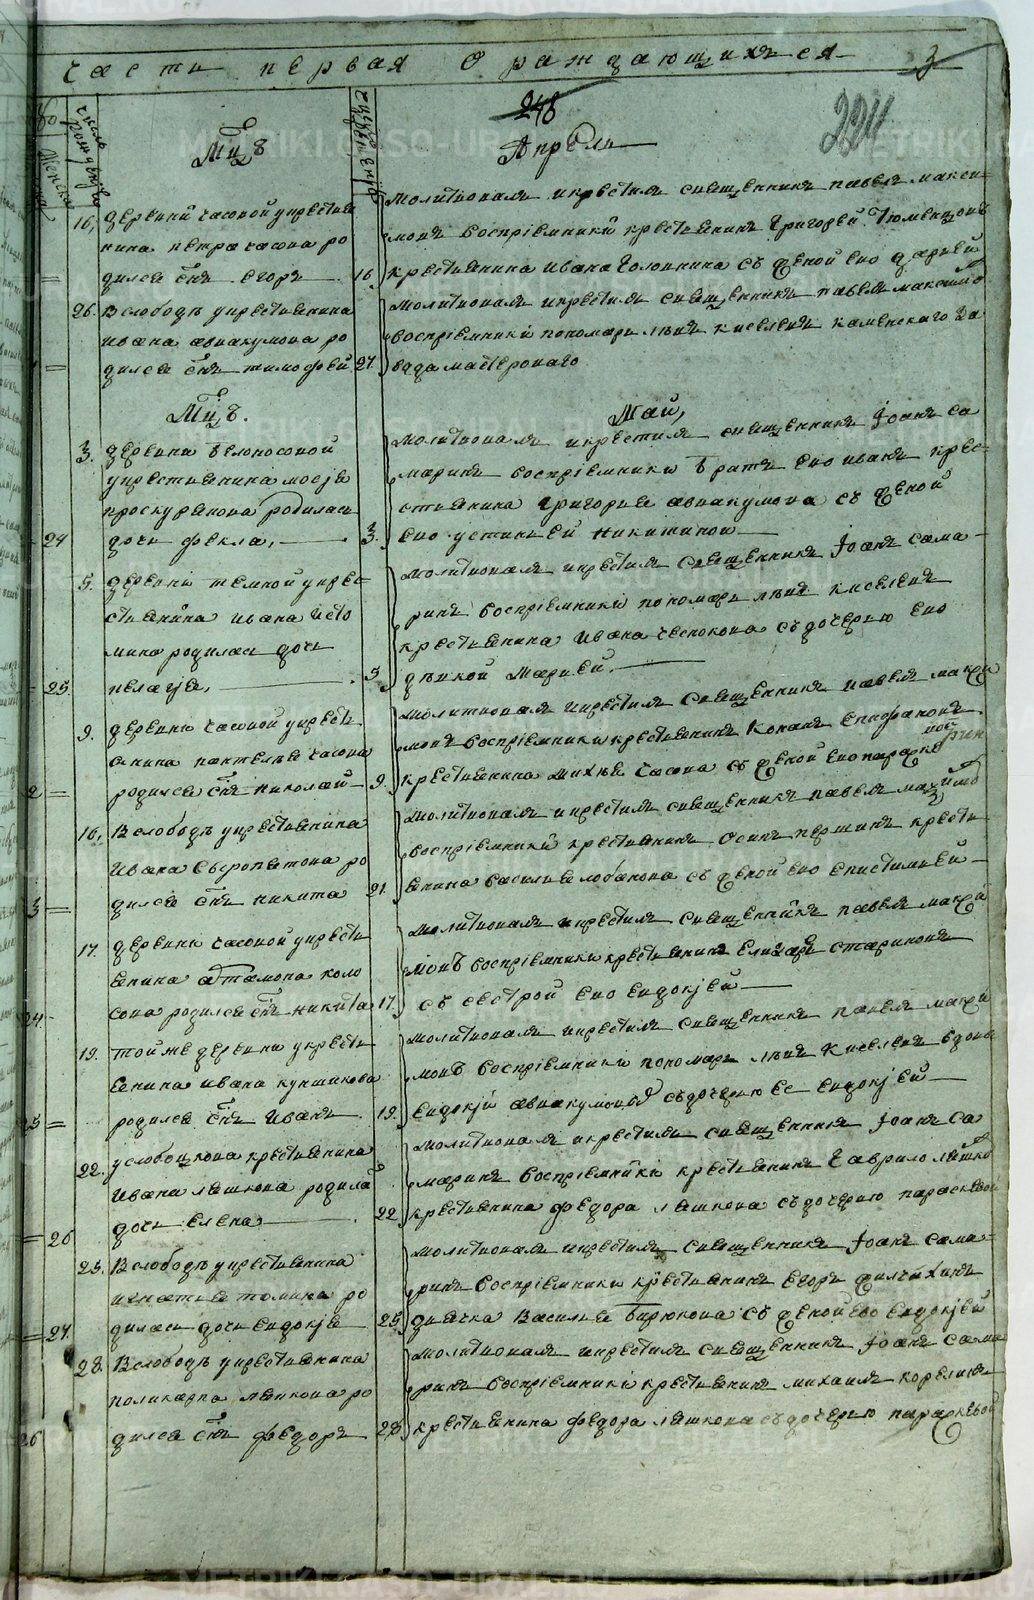 части первая О раждающихся 3
248
224
Мцъ Апрель
16. деревни часовой укрестья
нина петра часова ро
дился снъ егоръ 16.
молитвовалъ икрестилъ священникъ павелъ макси
мовъ воспріемники крестьянинъ григорей Тюменцовъ
крестьянина ивана голованина съ женой ево дарьей
26. Вслободѣ укрестьянина
ивана авакумова ро
дился снъ тимофей 27.
молитвовалъ икрестилъ священникъ павелъ максимо
воспріемники пономарь левъ киселевъ каменскаго за
вода мастероваго
Мцъ. Май,
3. деревни белоносовой
укрестьянина мосея
проскурякова родилась
24 дочь фекла, 3.
молитвовалъ икрестилъ священникъ Іоанъ са
маринъ воспріемники братъ ево иванъ крес
стьянина григорья авакумова съ женой
ево устиньей никитиной
5. деревни темной укрес
стьянина ивана исто
мина родилась дочь
25. пелагея, 5
молитвовалъ икрестилъ священникъ Іоанъ сама
ринъ воспріемники пономарь левъ киселевъ
крестьянина Ивана чеснокова съдочерью ево
девкой марьей.
9. деревни часовой укрестья
янина пантелея часова
2 родился снъ николай 9.
молитвовалъ икрестилъ священникъ павелъ макси
мовъ воспріемники крестьянинъ Конанъ Епифановъ
крестьянина михея часова съ женой ево параске
вой
16. Вслободѣ укрестьянина
Ивана Сыропятова ро
3 дился снъ никита 21.
молитвовалъ икрестилъ священникъ павелъ максимо
воспріемники крестьянинъ Осипъ першинъ кресть
янина василья лобанова съ женой ево епистимьей
17. деревни часовой укрести
янина Артамона коло
24. сова родился снъ никита 17.
молитвовалъ икрестилъ священникъ павелъ макси
мовъ воспріемники крестьянинъ елизаръ стариковъ
съ сестрой ево евдокіей
19. тойже деревни укрести
янина ивана купшикова
25 родился снъ Иванъ 19.
молитвовалъ икрестилъ священникъ павелъ макси
мовъ воспріемники пономарь левъ Киселевъ вдовы
евдокіи авакумовой съдочерью ее евдокіей
22. услободкова крестьянина
Ивана ляшкова родила
26 дочь елена 22
молитвовалъ икрестилъ священникъ Іоанъ са
маринъ воспріемники крестьянинъ Гаврило ляшко
крестьянина федора ляшкова съдочерью парасковьей
25. Вслободѣ укрестьянина
игнатья томина ро
27. дилась дочь евдокія 25.
молитвовалъ икрестилъ священникъ Іоанъ сама
ринъ воспріемники крестьянинъ егоръ
дьячка Василья Бирюкова съ женой ево евдокіей
28. Вслободѣ укрестьянина
поликарпа ляпкова ро
26 дился снъ федоръ 28
молитвовалъ икрестилъ священникъ Іоанъ сама
ринъ воспріемники крестьянинъ михаилъ корелинъ
крестьянина федора ляшкова съдочерью параскевой